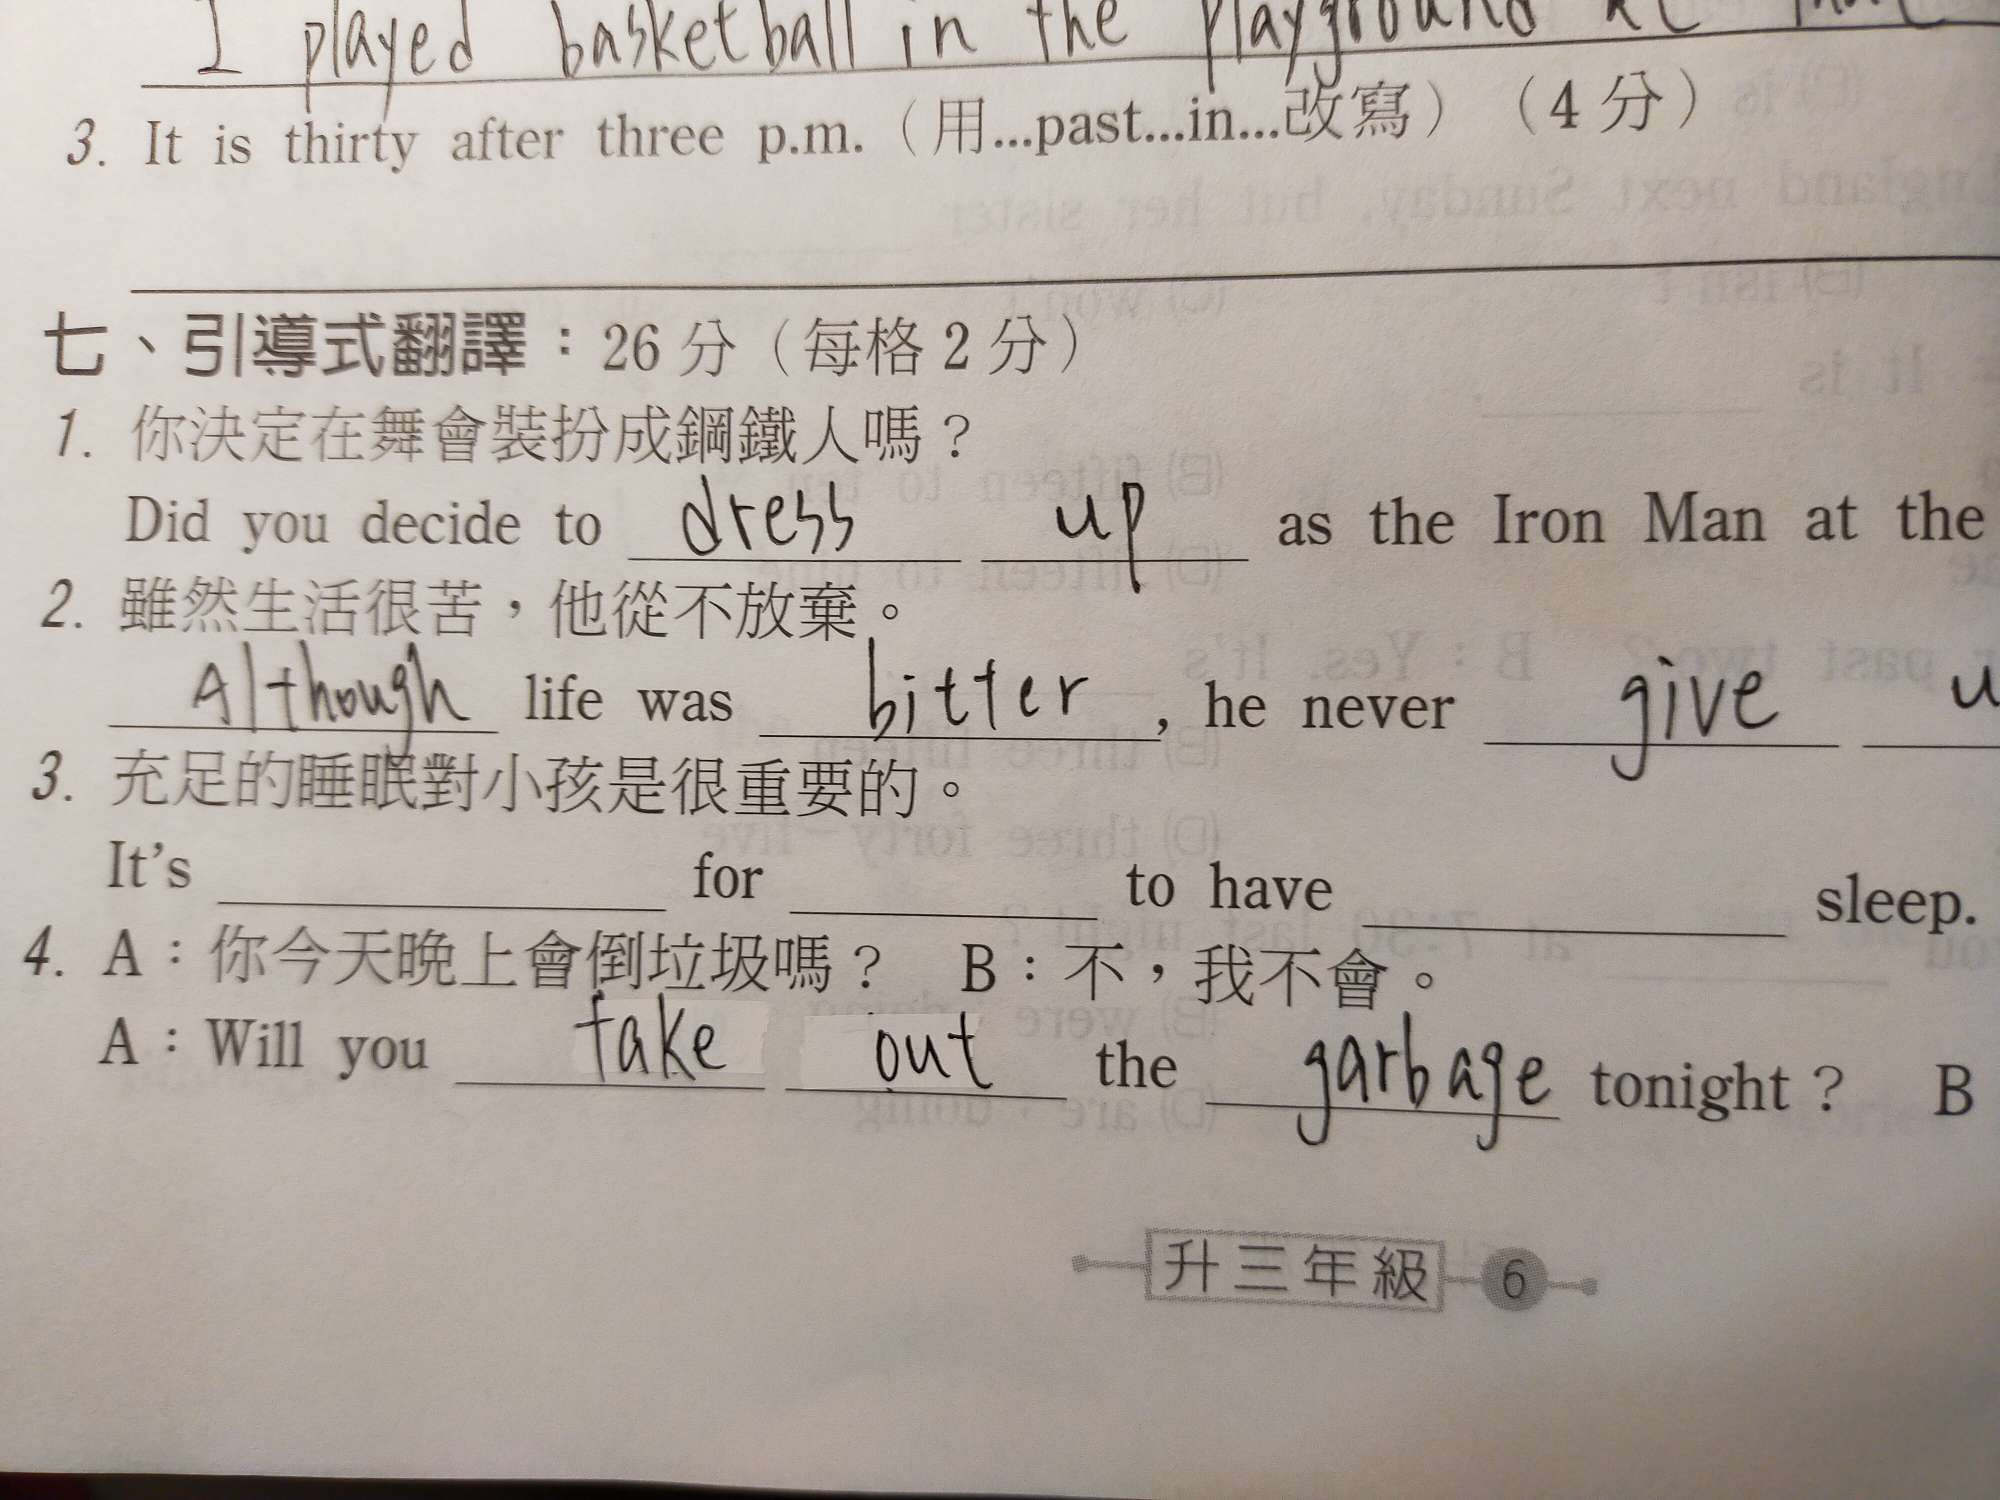 I played basketball in the playground at that
3. It is thirty after three p.m.（用...past...in...改寫）（4 分）
七、引導式翻譯：26 分（每格 2 分）
1. 你決定在舞會裝扮成鋼鐵人嗎？
Did you decide to dress up as the Iron Man at the
2. 雖然生活很苦，他從不放棄。
Although life was bitter, he never give u
3. 充足的睡眠對小孩是很重要的。
It's ____ for ____ to have ____ sleep.
4. A：你今天晚上會倒垃圾嗎？ B：不，我不會。
A：Will you take out the garbage tonight？ B
升三年級 6